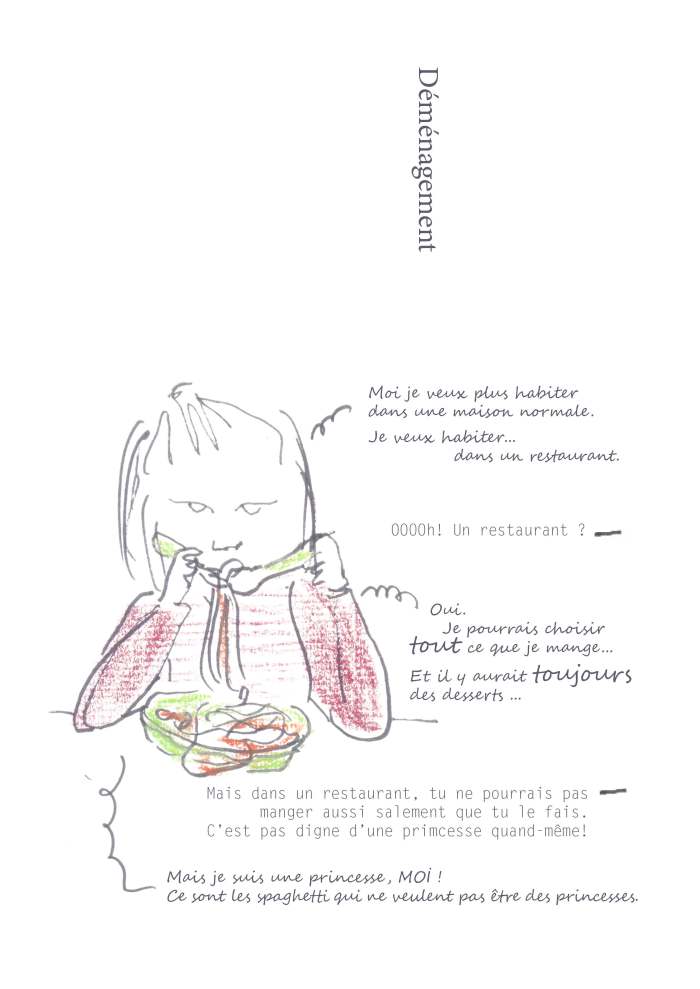 Déménagement
Moi je veux plus habiter
dans une maison normale.
Je veux habiter...
dans un restaurant.
OOOOh! Un restaurant ?
Oui.
Je pourrais choisir
tout ce que je mange...
Et il y aurait toujours
des desserts ...
Mais dans un restaurant, tu ne pourrais pas
manger aussi salement que tu le fais.
C'est pas digne d'une primcesse quand-même!
Mais je suis une princesse, MOÏ !
Ce sont les spaghetti qui ne veulent pas être des princesses.